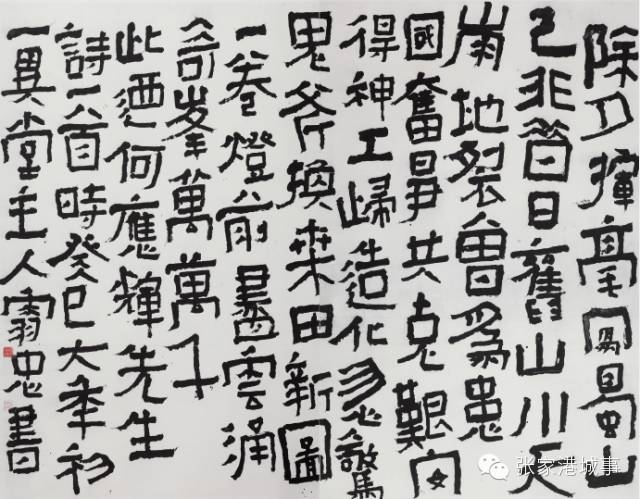 除夕揮毫寫蜀山
已非昔日舊山川天
崩地裂曾為患
國奮共克艱安
得神工歸造化忽驚
鬼斧換桑田新圖
一卷燈前畫雲涌
奇峯萬萬千
此迺何應輝先生
詩一首時癸巳大年初
一異堂主人忠書
张家港城事